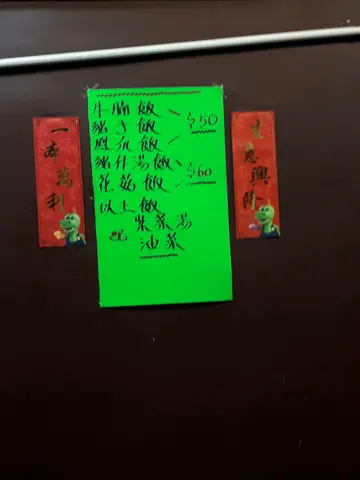 牛腩飯
豬手飯
$50
豬什湯飯
花菇飯
$60
以上飯
配
紫菜湯
油菜
一本萬利
生意興隆